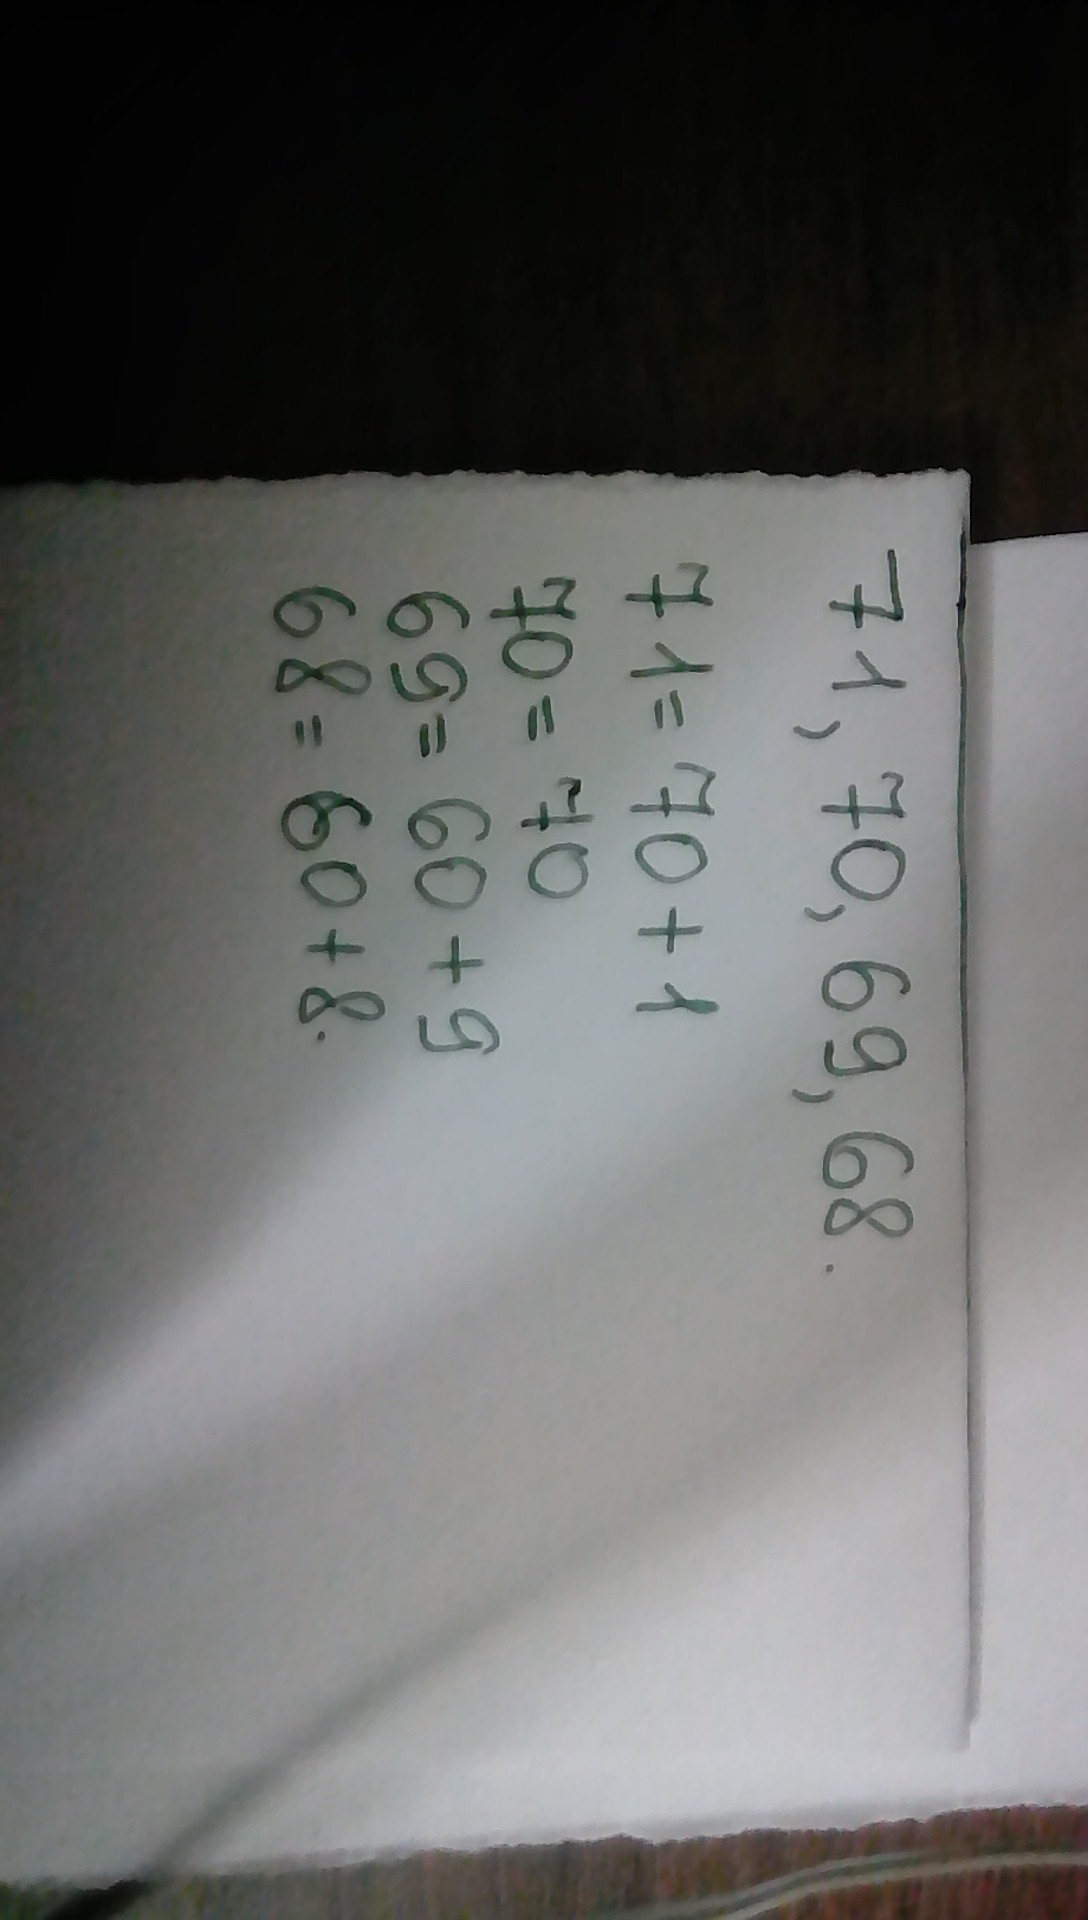 71, 70, 69, 68.
71 = 70 + 1
70 = 70
69 = 60 + 9
68 = 60 + 8.